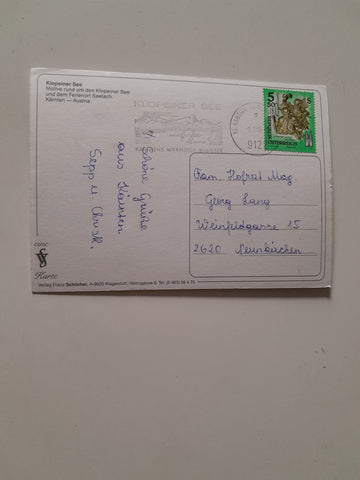 Klopeiner See
Motive rund um den Klopeiner See
und dem Ferienort Seelach
Kärnten – Austria
KLOPEINER SEE
KÄRNTENS WÄRMSTER BADESEE
912
5
50
S
ÖSTERREICH
Schöne Grüße
aus Kärnten
Sepp u. Christl.
Fam. Hofrat Mag.
Georg Lang
Weinfeldgasse 15
2620 Neunkirchen
eine
Karte
Verlag Franz Schilcher, A-9020 Klagenfurt,